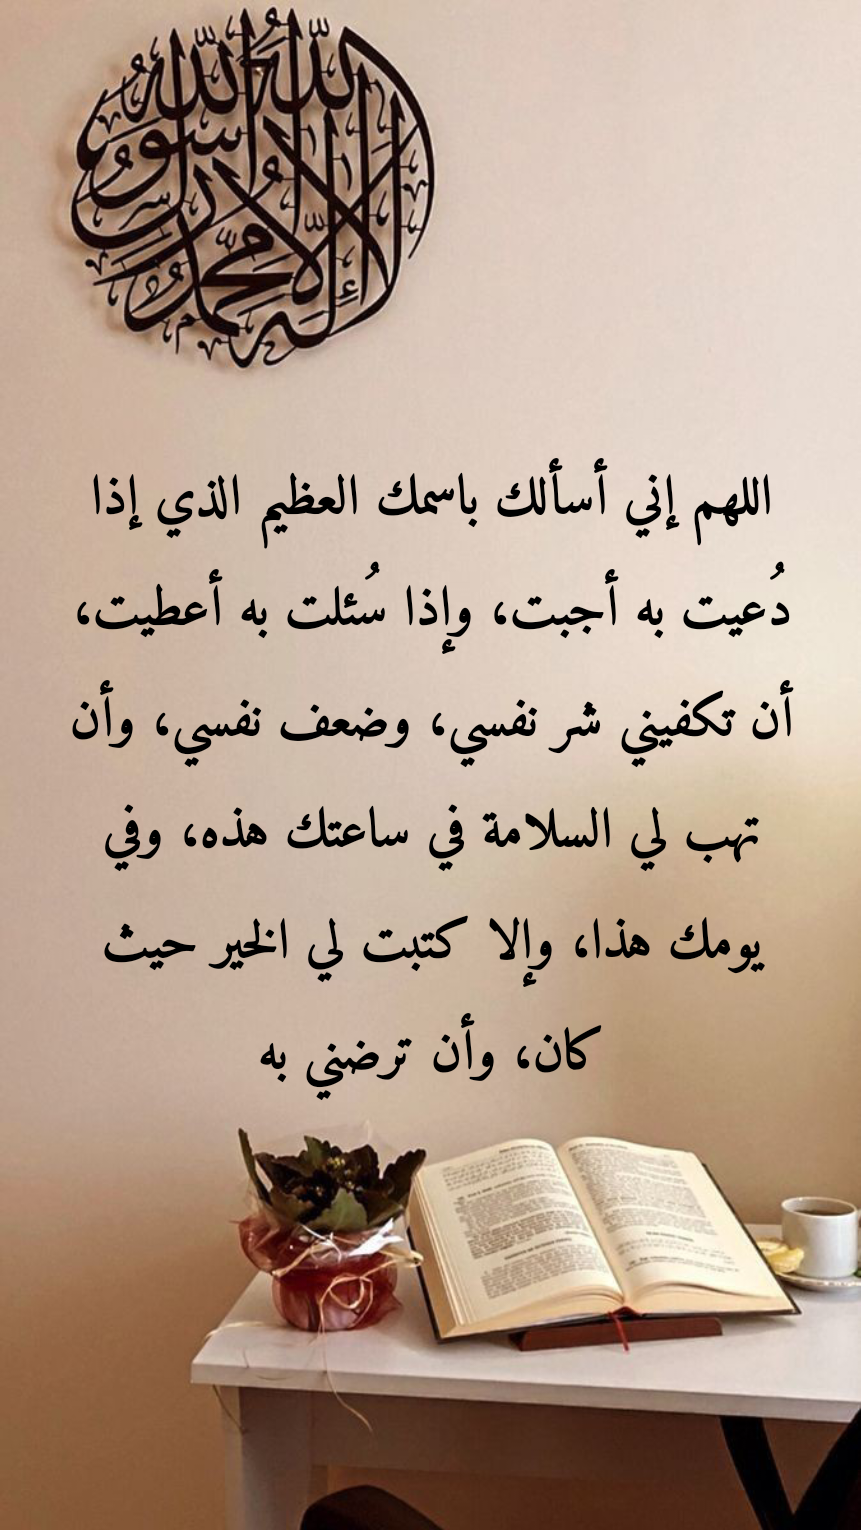 لا إله إلا الله محمد رسول الله
اللهم إني أسألك باسمك العظيم الذي إذا
دُعيت به أجبت، وإذا سُئلت به أعطيت،
أن تكفيني شر نفسي، وضعف نفسي، وأن
تهب لي السلامة في ساعتك هذه، وفي
يومك هذا، وإلا كتبت لي الخير حيث
كان، وأن ترضني به